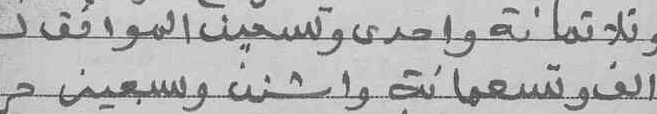 وثلاثمائة واحدى وتسعين الموافق
الف وتسعمائة واثنين وسبعين